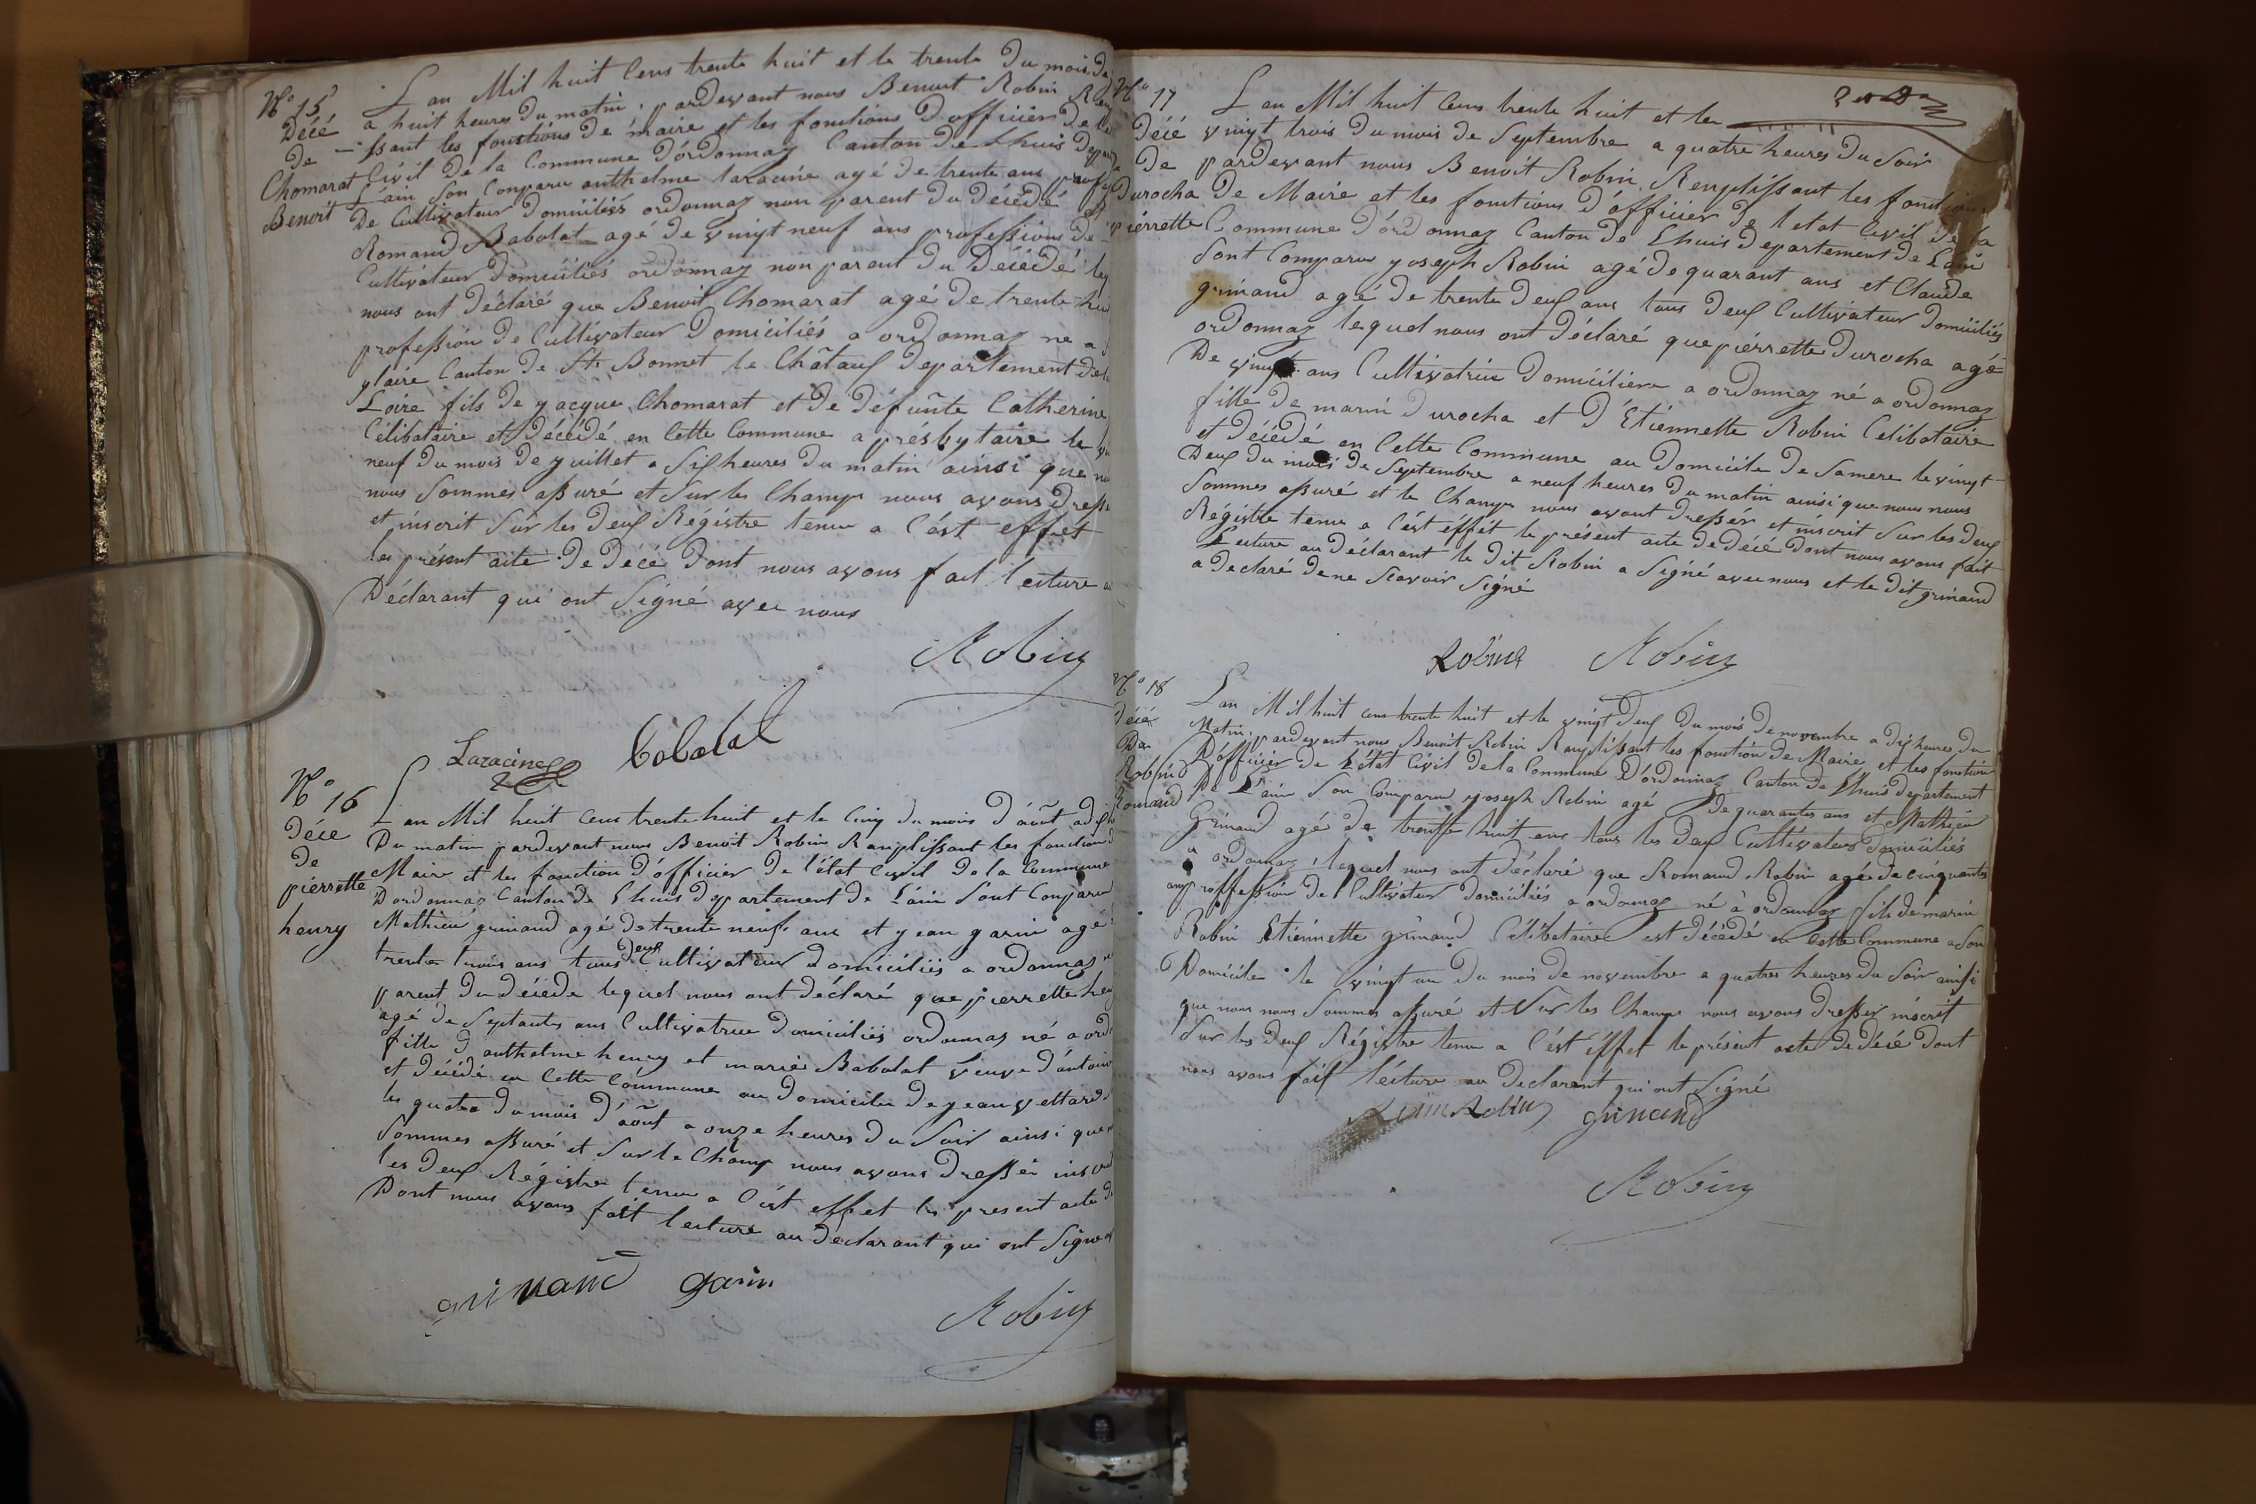 N° 15
Décé
de
Chomarat
Benoit
L'an Mil huit Cens trente huit et le trente Du mois de
a huit heures Du matin, pardevant nous Benoit Robin
-ssant les fonctions De maire et les fonctions D'officier De
Civil De la Commune D'ordonnaz Canton De Lhuis
L'ain Son Comparu anthelme Laracine agé De trente ans
De Cultivateur Domiciliés ordonnaz non parent Du Décédé et
Romand Babolat agé De Vingt neuf ans profession De
Cultivateur Domiciliés ordonnaz non parent Du Décédé
nous ont Déclaré que Benoit Chomarat agé De trente
profession De Cultivateur Domiciliés a ordonnaz ne a
Canton De St Bonnet le Chataux Departement De
Loire fils De Jacque Chomarat et De Défunte Catherine
Célibataire et Décédé en Cette Commune a présbytaire le
neuf Du mois De Juillet a Six heures Du matin ainsi que
nous Sommes assuré et Sur les Champs nous avons
et inscrit Sur les Deux Régistre tenu a Cést effet
les présent acte De Décé Dont nous avons fait lecture
Déclarant qui ont Signé avec nous
Robin
Laracine Babolat
N° 16
Déce
De
pierrette
henry
L'an Mil huit Cens trente huit et le Cinq Du mois D'août a
Du matin pardevant nous Benoit Robin Ramplissant les fonction
Maire et les fonction D'officier De l'état Civil De la Commune
D'ordonnaz Canton De Lhuis Departement De L'ain Sont Comparu
Mathieu grimand agé De trente neuf ans et Jean garin agé
trente trois ans tous Deux Cultivateur Domiciliés a ordonnaz
parent Du Décéde lequel nous ont Déclaré que pierrette
agé De Septante ans Cultivatrice Domiciliés ordonnaz né a
fille D'anthelme henry et marie Babolat Veuve D'antoine
et Décédé en Cette Commune au Domicile De Jean Vettard
les quatre Du mois D'août a onze heures Du Soir ainsi que
Sommes assuré et Sur le Champ nous avons Dressér
les Deux Régistre tenu a Cést effet les present acte
Dont nous avons fait lecture au Declarant qui ont Signé
grimand garin
Robin
N° 17
Décé
De
Durocha
pierrette
L'an Mil huit Cens trente huit et le
vingt trois Du mois De Septembre a quatre heures Du Soir
pardevant nous Benoit Robin Remplissant les fonctions
De Maire et les fonctions D'officier De l'etat Civil De la
Commune D'ordonnaz Canton De Lhuis Departement De Lain
Sont Comparu Joseph Robin agé De quarant ans et Claude
grimand agé De trente Deux ans tous Deux Cultivateur Domiciliés
ordonnaz lequel nous ont Déclaré que pierrette Durocha agé
De vingt ans Cultivatrice Domicilière a ordonnaz né a ordonnaz
fille De marin Durocha et D'Etiennette Robin Celibataire
et Décédé en Cette Commune au Domicile De Samere le vingt
Deux Du mois De Septembre a neuf heures Du matin ainsi que nous nous
Sommes assuré et le Champs nous avont Dressér et inscrit Sur les Deux
Régistre tenu a Cést effét le présent acte De Décé Dont nous avons fait
Lecture au Déclarant le Dit Robin a Signé avec nous et le Dit grimand
a Declaré De ne Scavoir Signé
Robin Robin
N° 18
Décé
De
Robin
Romand
L'an Mil huit cens trente huit et le vingt Deux Du mois De novembre a Dix heures Du
Matin, pardevant nous Benoit Robin Ramplissant les fonction De Maire et les fonction
D'officier De L'état Civil De la Commune D'ordonnaz Canton De Lhuis departement
De L'ain Son Comparu Joseph Robin agé De quarantes ans et Mathieu
Grimand agé De trente huit ans tous les Deux Cultivateur Domiciliés
a ordonnaz, lequel nous ont Déclaré que Romand Robin agé De cinquantes
ans proffession De Cultivateur domiciliés a ordonnaz né à ordonnaz fils De marin
Robin Etiennette grimand Célibataire est Décédé en Cette Commune a Son
Domicile le vingt un Du mois De novembre a quatres heures Du Soir ainsi
que nous nous Sommes assuré et Sur les Champs nous avons Dressér inscrit
Sur les Deux Régistre tenu a Cést éffet le présent acte De Décé Dont
nous avons fait lécture au Declarant qui ont Signé
Robin grimand
Robin